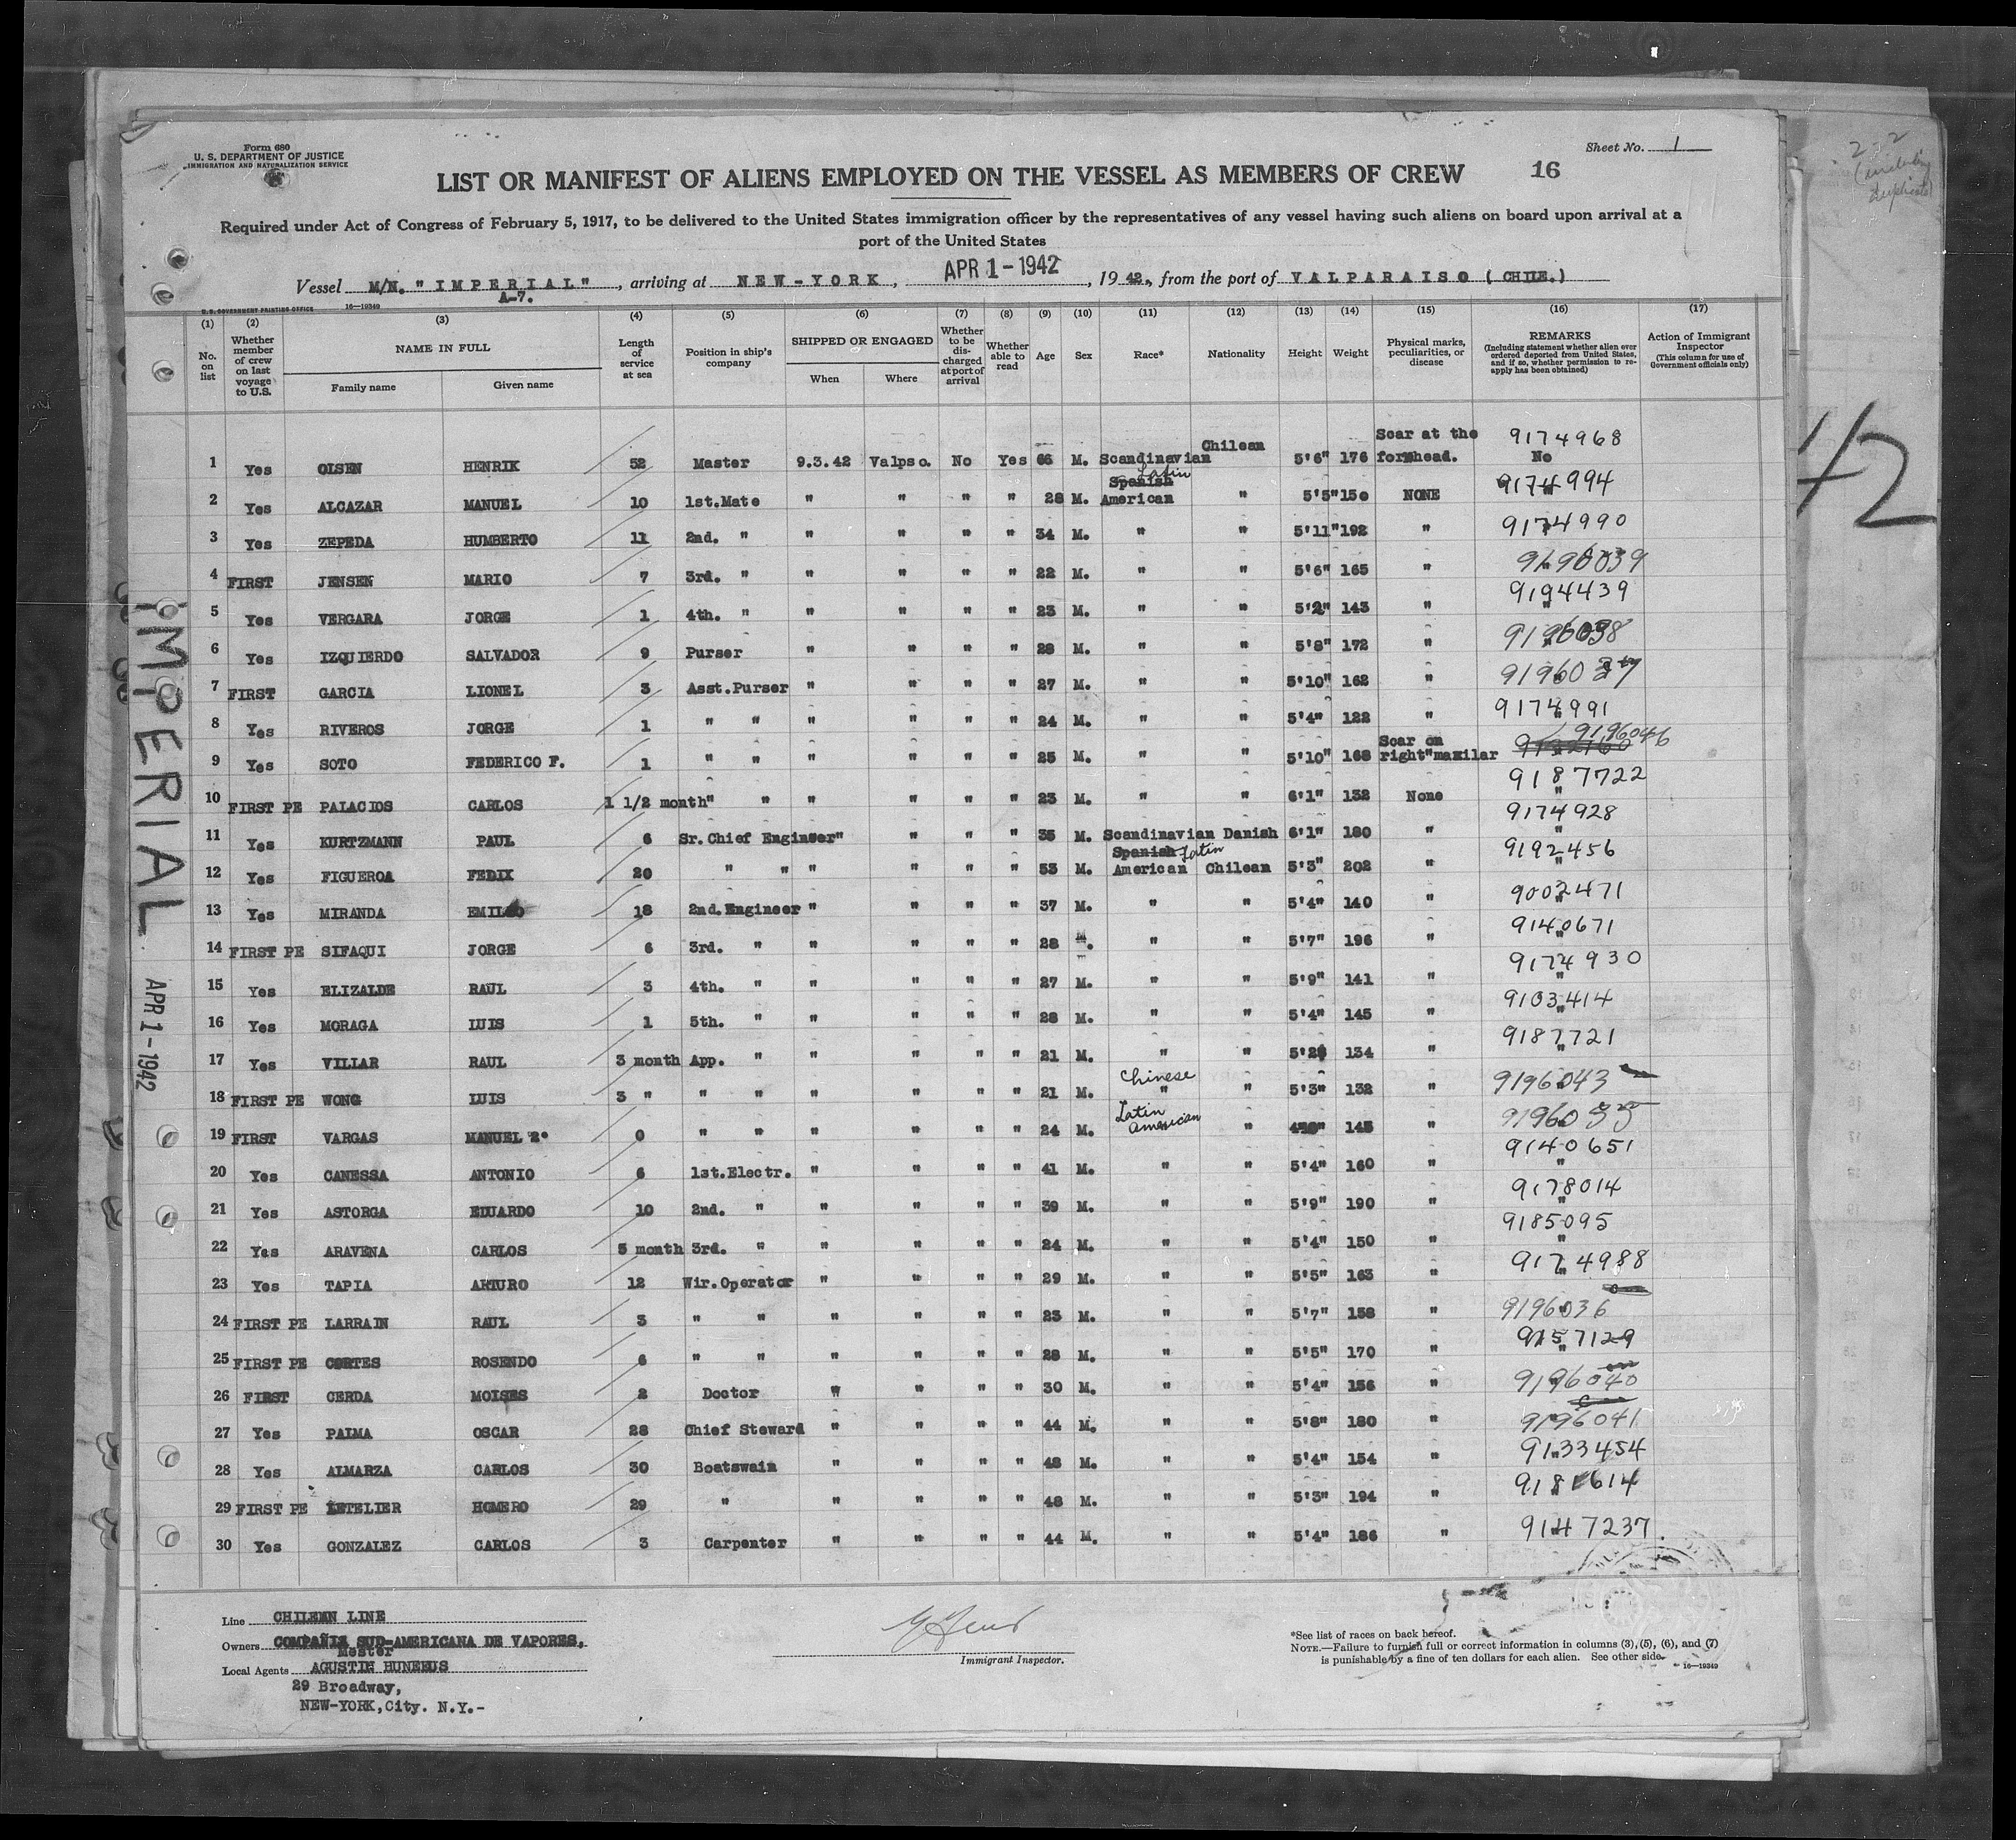 Form 680
U. S. DEPARTMENT OF JUSTICE
IMMIGRATION AND NATURALIZATION SERVICE
Sheet No. 1
LIST OR MANIFEST OF ALIENS EMPLOYED ON THE VESSEL AS MEMBERS OF CREW 16
Required under Act of Congress of February 5, 1917, to be delivered to the United States immigration officer by the representatives of any vessel having such aliens on board upon arrival at a
port of the United States
Vessel M/N. "IMPERIAL" A-7., arriving at NEW-YORK, APR 1-1942, 1942., from the port of VALPARAISO (CHILE.)
U.S. GOVERNMENT PRINTING OFFICE 16—19349
(1) No. on list
(2) Whether member of crew on last voyage to U.S.
(3) NAME IN FULL Family name Given name
(4) Length of service at sea
(5) Position in ship's company
(6) SHIPPED OR ENGAGED When Where
(7) Whether to be discharged at port of arrival
(8) Whether able to read
(9) Age
(10) Sex
(11) Race*
(12) Nationality
(13) Height
(14) Weight
(15) Physical marks, peculiarities, or disease
(16) REMARKS (Including statement whether alien ever ordered deported from United States, and if so, whether permission to re-apply has been obtained)
(17) Action of Immigrant Inspector (This column for use of Government officials only)
1 Yes OLSEN HENRIK 52 Master 9.3.42 Valpso. No Yes 66 M. Scandinavian Chilean 5'6" 176 Scar at the forehead. 9174968 No
2 Yes ALCAZAR MANUEL 10 1st.Mate " " " " 28 M. Spanish Latin American " 5'5" 150 NONE 9174994
3 Yes ZEPEDA HUMBERTO 11 2nd. " " " " " 34 M. " " 5'11" 192 " 9174990
4 FIRST JENSEN MARIO 7 3rd. " " " " " 22 M. " " 5'6" 165 " 9196039
5 Yes VERGARA JORGE 1 4th. " " " " " 23 M. " " 5'2" 143 " 9194439
6 Yes IZQUIERDO SALVADOR 9 Purser " " " " 28 M. " " 5'8" 172 " 9196038
7 FIRST GARCIA LIONEL 3 Asst.Purser " " " " 27 M. " " 5'10" 162 " 9196037
8 Yes RIVEROS JORGE 1 " " " " " " 24 M. " " 5'4" 122 " 9174991
9 Yes SOTO FEDERICO F. 1 " " " " " " 25 M. " " 5'10" 168 Scar on right"maxilar 9196046
10 FIRST PE PALACIOS CARLOS 1 1/2 month" " " " " " 23 M. " " 6'1" 132 None 9187722
11 Yes KURTZMANN PAUL 6 Sr.Chief Engineer" " " " 35 M. Scandinavian Danish 6'1" 180 " 9174928
12 Yes FIGUEROA FEDIX 20 " " " " " " 53 M. Spanish Latin American Chilean 5'3" 202 " 9192456
13 Yes MIRANDA EMILIO 18 2nd.Engineer " " " " 37 M. " " 5'4" 140 " 9002471
14 FIRST PE SIFAQUI JORGE 6 3rd. " " " " " 28 M. " " 5'7" 196 " 9140671
15 Yes ELIZALDE RAUL 3 4th. " " " " " 27 M. " " 5'9" 141 " 9174930
16 Yes MORAGA LUIS 1 5th. " " " " " 28 M. " " 5'4" 145 " 9103414
17 Yes VILLAR RAUL 3 month App. " " " " " 21 M. " " 5'2" 134 " 9187721
18 FIRST PE WONG LUIS 3 " " " " " " " 21 M. Chinese " " 5'3" 132 " 9196043
19 FIRST VARGAS MANUEL 2° 0 " " " " " " 24 M. Latin American " 145 "
20 Yes CANESSA ANTONIO 6 1st.Electr. " " " " 41 M. " " 5'4" 160 " 9140651
21 Yes ASTORGA EDUARDO 10 2nd. " " " " " 39 M. " " 5'9" 190 " 9178014
22 Yes ARAVENA CARLOS 5 month 3rd. " " " " " 24 M. " " 5'4" 150 " 9185095
23 Yes TAPIA ARTURO 12 Wir.Operator " " " " 29 M. " " 5'5" 163 " 9174988
24 FIRST PE LARRAIN RAUL 3 " " " " " " 23 M. " " 5'7" 158 " 9196036
25 FIRST PE CORTES ROSENDO 6 " " " " " " 28 M. " " 5'5" 170 " 9157129
26 FIRST CERDA MOISES 2 Doctor " " " " 30 M. " " 5'4" 156 " 9196040
27 Yes PALMA OSCAR 28 Chief Steward " " " " 44 M. " " 5'8" 180 " 9196041
28 Yes ALMARZA CARLOS 30 Boatswain " " " " 48 M. " " 5'4" 154 " 9133454
29 FIRST PE LETELIER HOMERO 29 " " " " " 48 M. " " 5'3" 194 " 9181614
30 Yes GONZALEZ CARLOS 3 Carpenter " " " " 44 M. " " 5'4" 186 " 9147237.
IMPERIAL APR 1-1942
42
Line CHILEAN LINE
Owners COMPAÑIA SUD-AMERICANA DE VAPORES,
Master
Local Agents AGUSTIN HUNEEUS
29 Broadway,
NEW-YORK,City. N.Y.-
Immigrant Inspector.
*See list of races on back hereof.
NOTE.—Failure to furnish full or correct information in columns (3), (5), (6), and (7)
is punishable by a fine of ten dollars for each alien. See other side.
16—19349